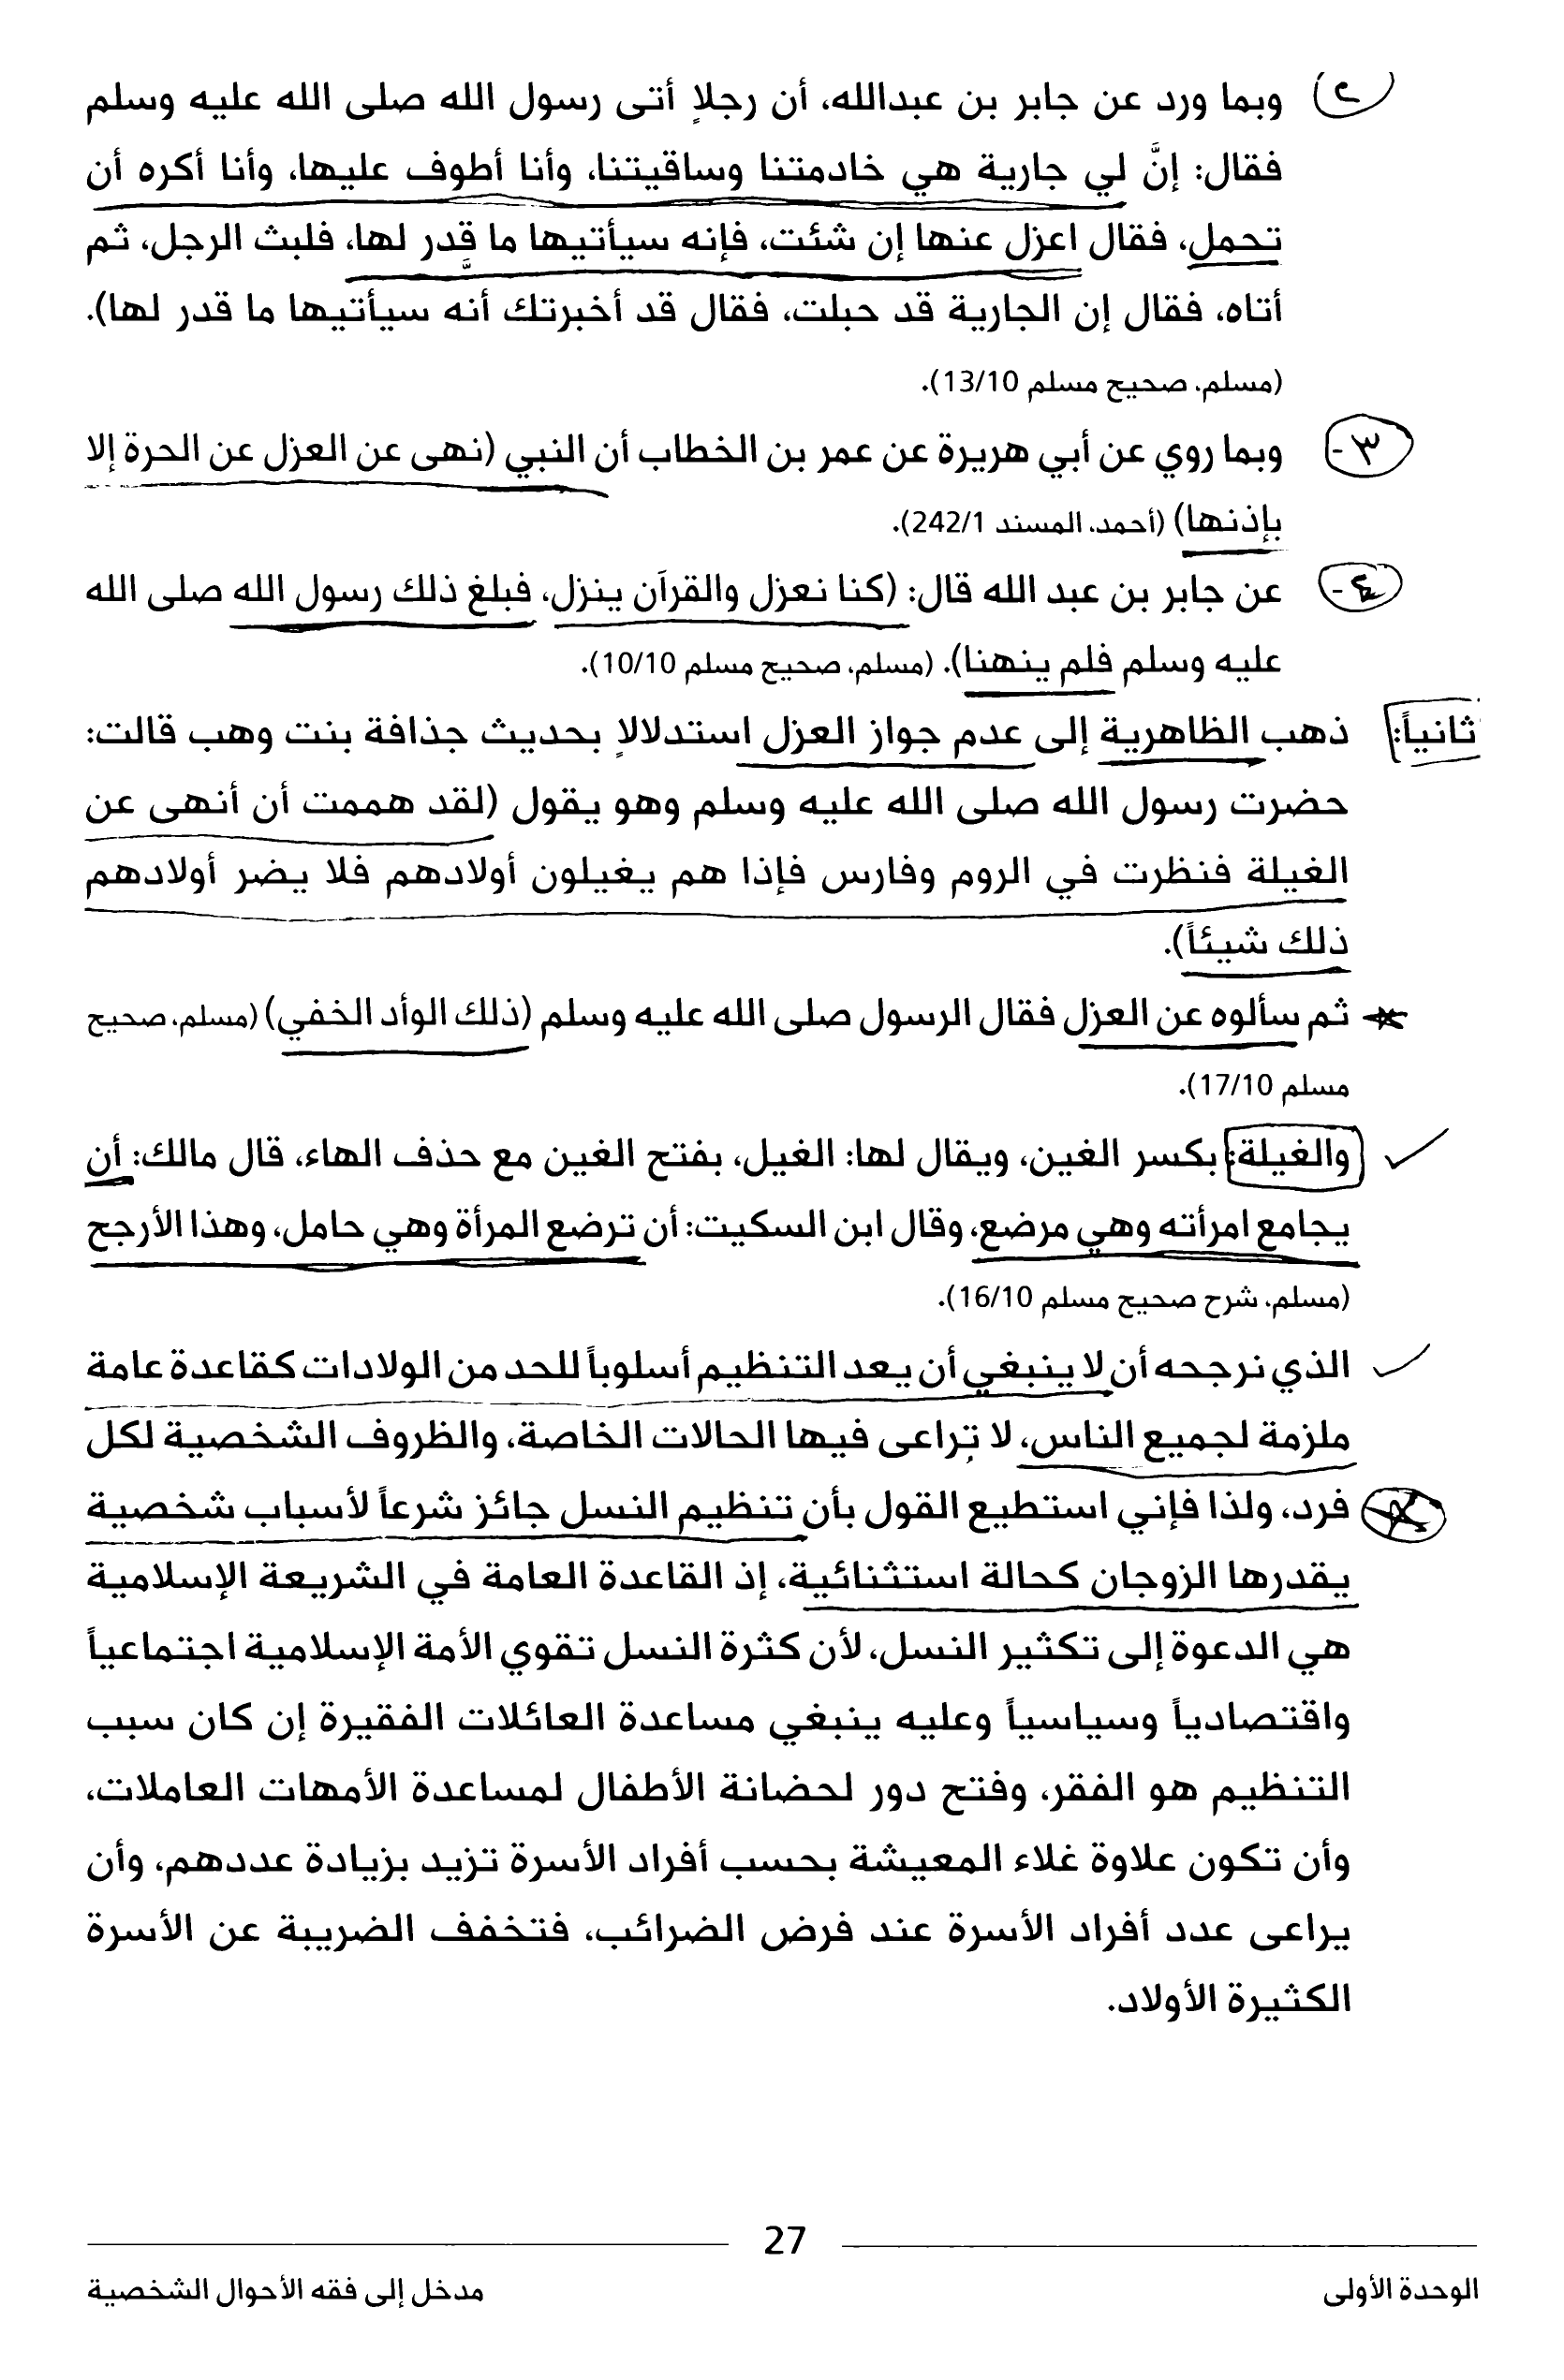 ٢ وبما ورد عن جابر بن عبدالله، أن رجلاٍ أتى رسول الله صلى الله عليه وسلم
فقال: إنَّ لي جارية هي خادمتنا وساقيتنا، وأنا أطوف عليها، وأنا أكره أن
تحمل، فقال اعزل عنها إن شئت، فإنه سيأتيها ما قدر لها، فلبث الرجل، ثم
أتاه، فقال إن الجارية قد حبلت، فقال قد أخبرتك أنه سيأتيها ما قدر لها).
(مسلم، صحيح مسلم 13/10).
٣- وبما روي عن أبي هريرة عن عمر بن الخطاب أن النبي (نهى عن العزل عن الحرة إلا
بإذنها) (أحمد، المسند 242/1).
٤- عن جابر بن عبد الله قال: (كنا نعزل والقرآن ينزل، فبلغ ذلك رسول الله صلى الله
عليه وسلم فلم ينهنا). (مسلم، صحيح مسلم 10/10).
ثانياً: ذهب الظاهرية إلى عدم جواز العزل استدلالاٍ بحديث جذافة بنت وهب قالت:
حضرت رسول الله صلى الله عليه وسلم وهو يقول (لقد هممت أن أنهى عن
الغيلة فنظرت في الروم وفارس فإذا هم يغيلون أولادهم فلا يضر أولادهم
ذلك شيئاً).
ثم سألوه عن العزل فقال الرسول صلى الله عليه وسلم (ذلك الوأد الخفي) (مسلم، صحيح
مسلم 17/10).
والغيلة: بكسر الغين، ويقال لها: الغيل، بفتح الغين مع حذف الهاء، قال مالك: أن
يجامع امرأته وهي مرضع، وقال ابن السكيت: أن ترضع المرأة وهي حامل، وهذا الأرجح
(مسلم، شرح صحيح مسلم 16/10).
الذي نرجحه أن لا ينبغي أن يعد التنظيم أسلوباً للحد من الولادات كقاعدة عامة
ملزمة لجميع الناس، لا تراعى فيها الحالات الخاصة، والظروف الشخصية لكل
فرد، ولذا فإني استطيع القول بأن تنظيم النسل جائز شرعاً لأسباب شخصية
يقدرها الزوجان كحالة استثنائية، إذ القاعدة العامة في الشريعة الإسلامية
هي الدعوة إلى تكثير النسل، لأن كثرة النسل تقوي الأمة الإسلامية اجتماعياً
واقتصادياً وسياسياً وعليه ينبغي مساعدة العائلات الفقيرة إن كان سبب
التنظيم هو الفقر، وفتح دور لحضانة الأطفال لمساعدة الأمهات العاملات،
وأن تكون علاوة غلاء المعيشة بحسب أفراد الأسرة تزيد بزيادة عددهم، وأن
يراعى عدد أفراد الأسرة عند فرض الضرائب، فتخفف الضريبة عن الأسرة
الكثيرة الأولاد.
27
الوحدة الأولى
مدخل إلى فقه الأحوال الشخصية